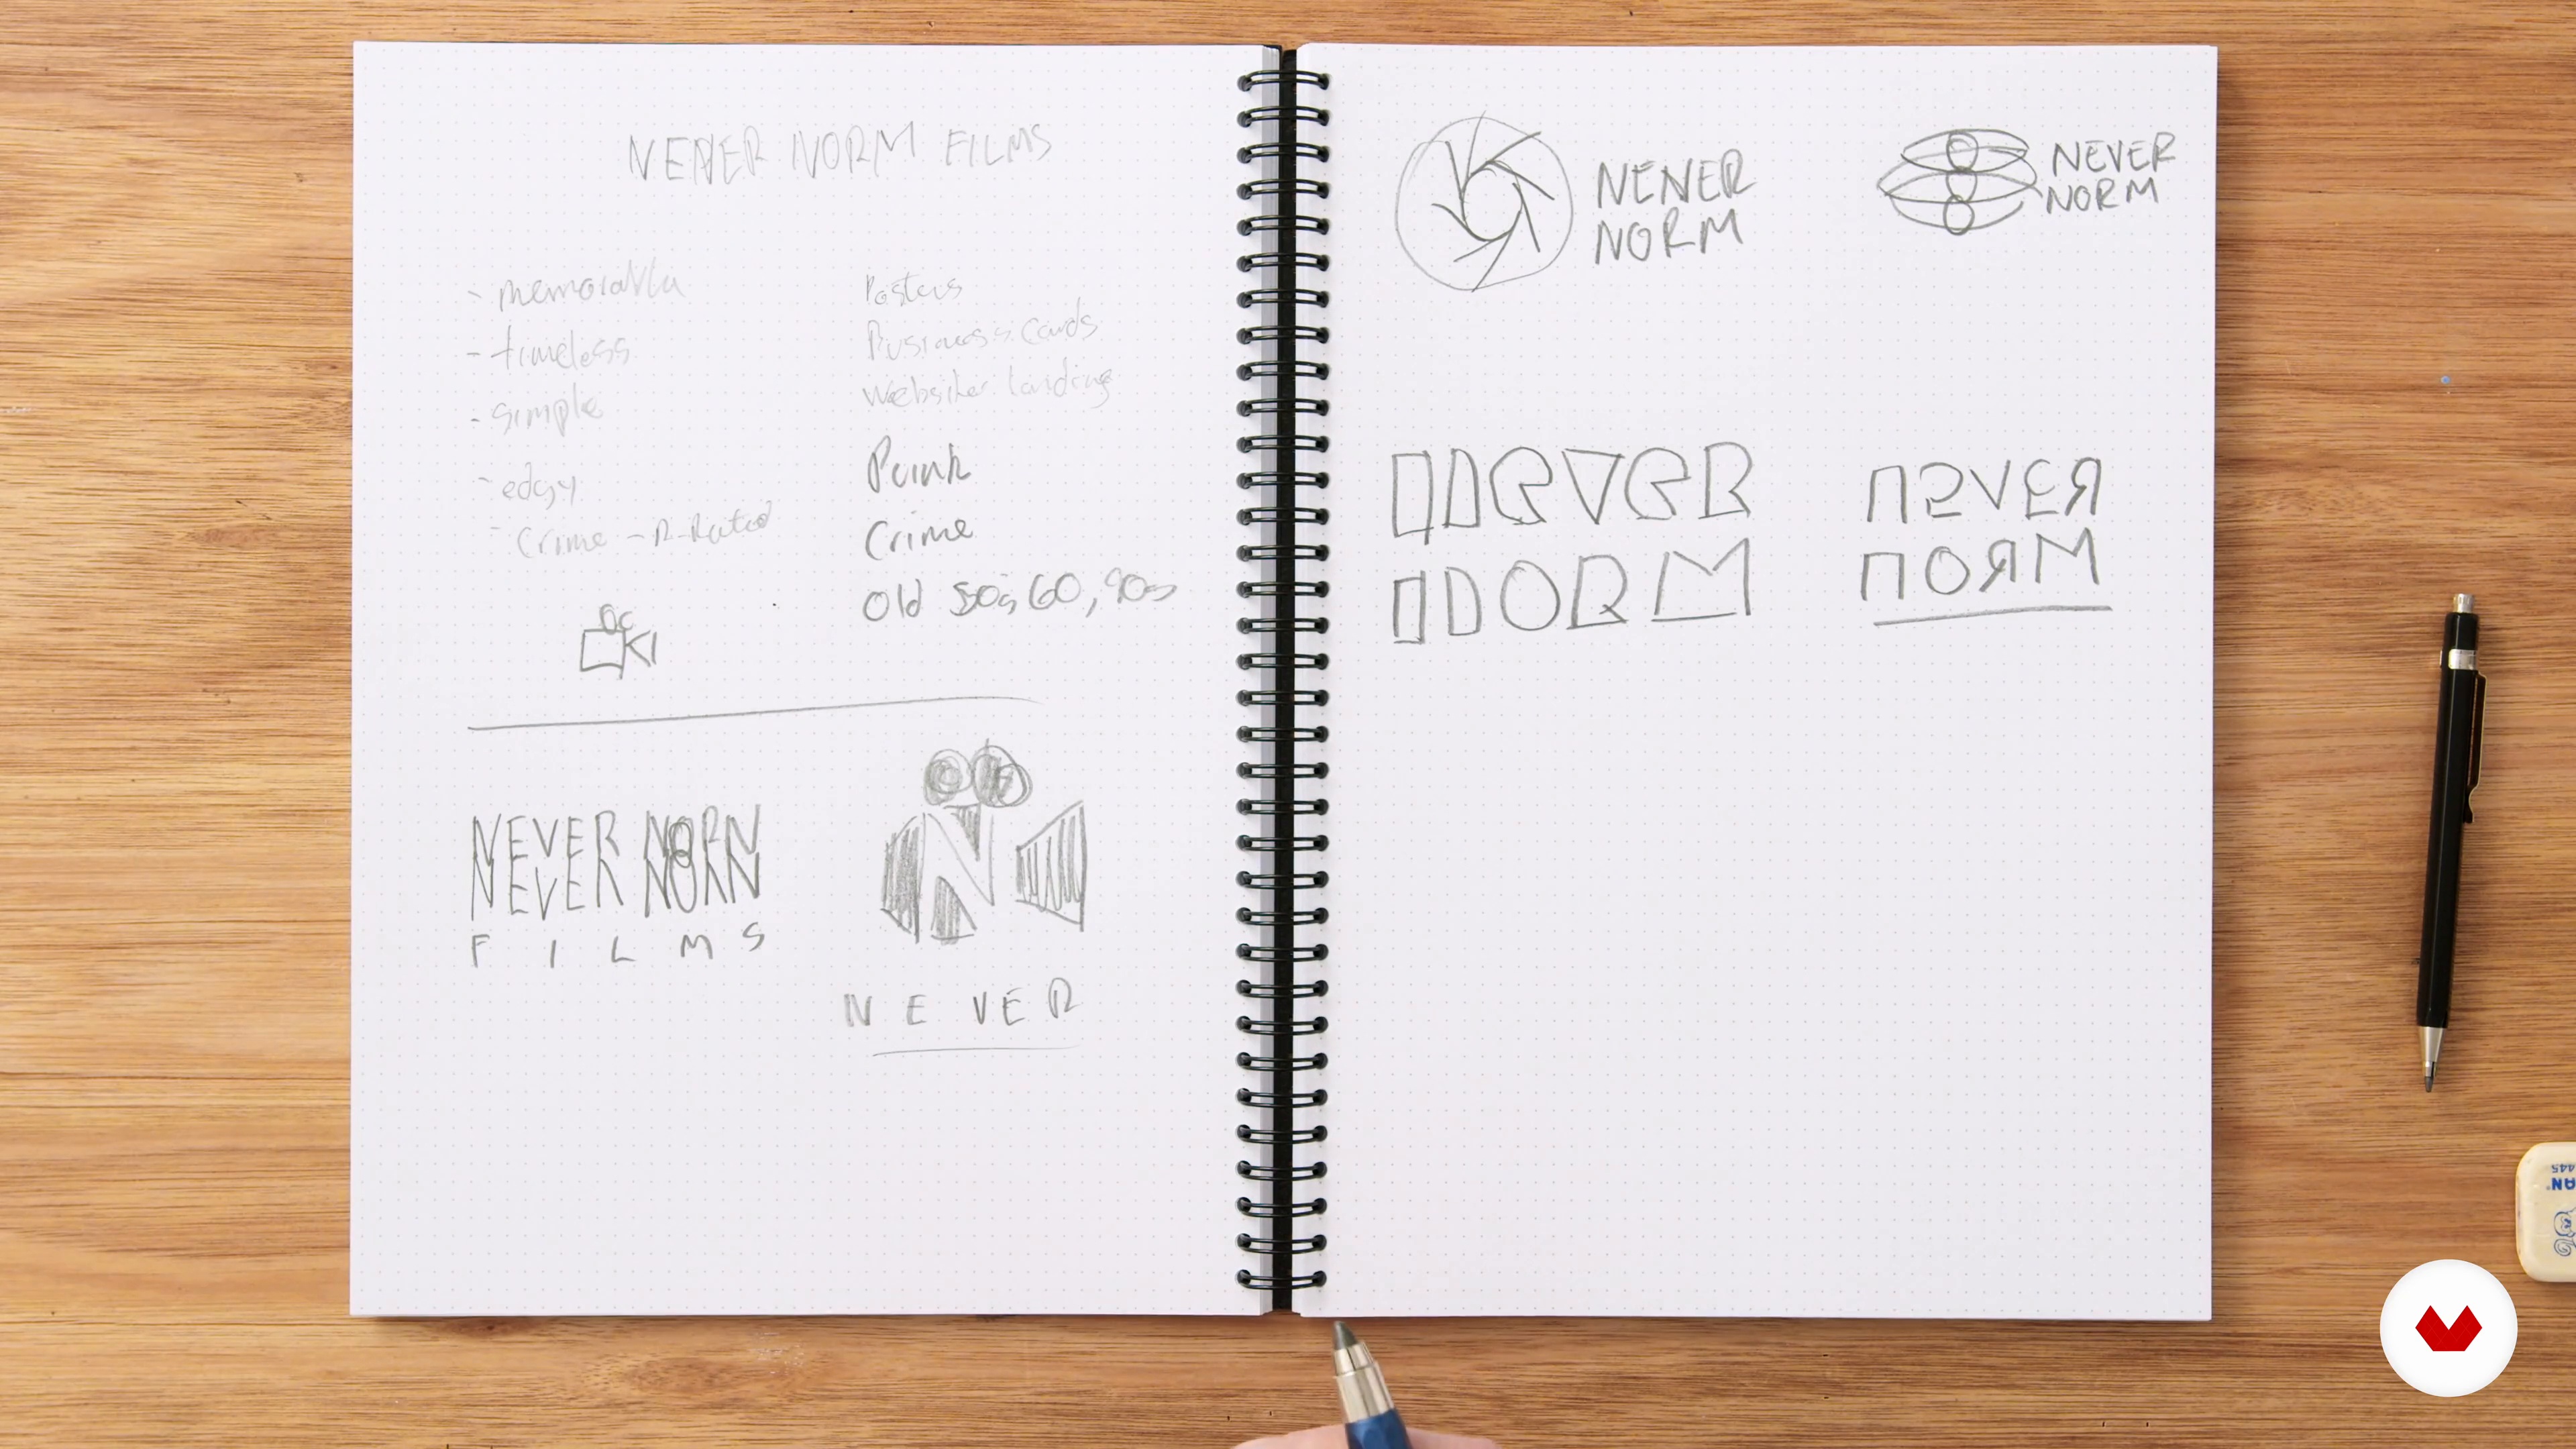 NEVER NORM FILMS
- memorable
- timeless
- simple
- edgy
- Crime - R-Rated
Posters
Business Cards
Website landing
Punk
Crime
Old 50s, 60, 90s
NEVER NORN
NEVER NORN
FILMS
N
NEVER
NEVER
NORM
NEVER
NORM
NEVER
NORM
ПƧVEЯ
ПOЯM